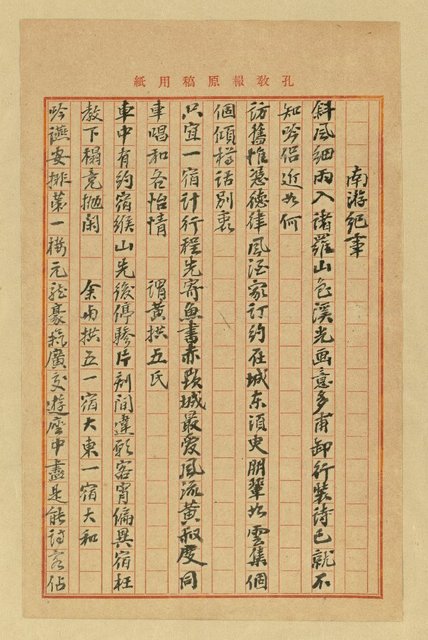 孔教報原稿用紙
南游紀事
斜風細雨入諸羅山色溪光畫意多甫卸行裝詩已就不
知吟侶近如何
訪舊惟憑德律風酒家訂約在城东須臾朋輩如雲集個
個傾樽話別衷
只宜一宿計行程先寄魚書赤嵌城最爱風流黄叔度同
車唱和各怡情　謂黄拱五氏
車中有約宿猴山先後停驂片刻間違願客宵偏異宿枉
教下榻竟抛閑　余与拱五一宿大東一宿大和
吟讌安排第一樓元龍豪氣廣交遊座中盡是能詩客佔